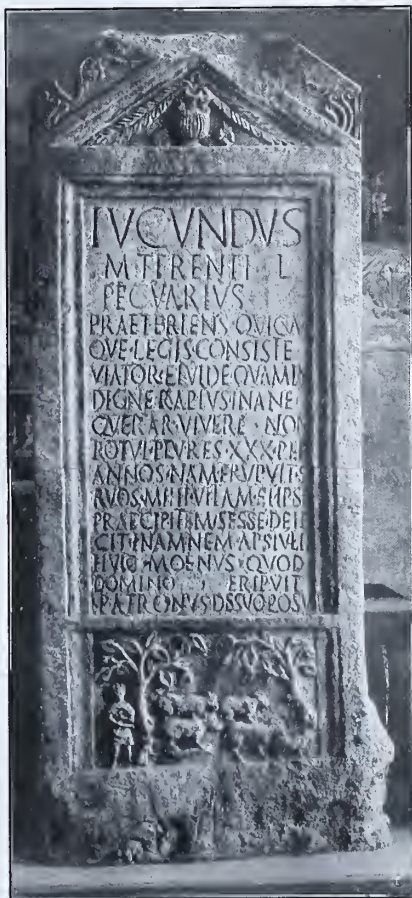 IVCVNDVS
M TERENTI L
PECVARIVS
PRAETERIENS QVICVM
QVE LEGIS CONSISTE
VIATOR ET VIDE QVAM IN
DIGNE RAPTVS INANE
QVERAR VIVERE NON
POTVI PLVRES XXX PER
ANNOS NAM ERVPVIT SE
RVOS MIHI VITAM ET IPSE
PRAECIPITEM SESSE DEIE
CIT IN AMNEM APSTVLIT
HVIC MOENVS QVOD
DOMINO ERIPVIT
PATRONVS DE SVO POSVIT